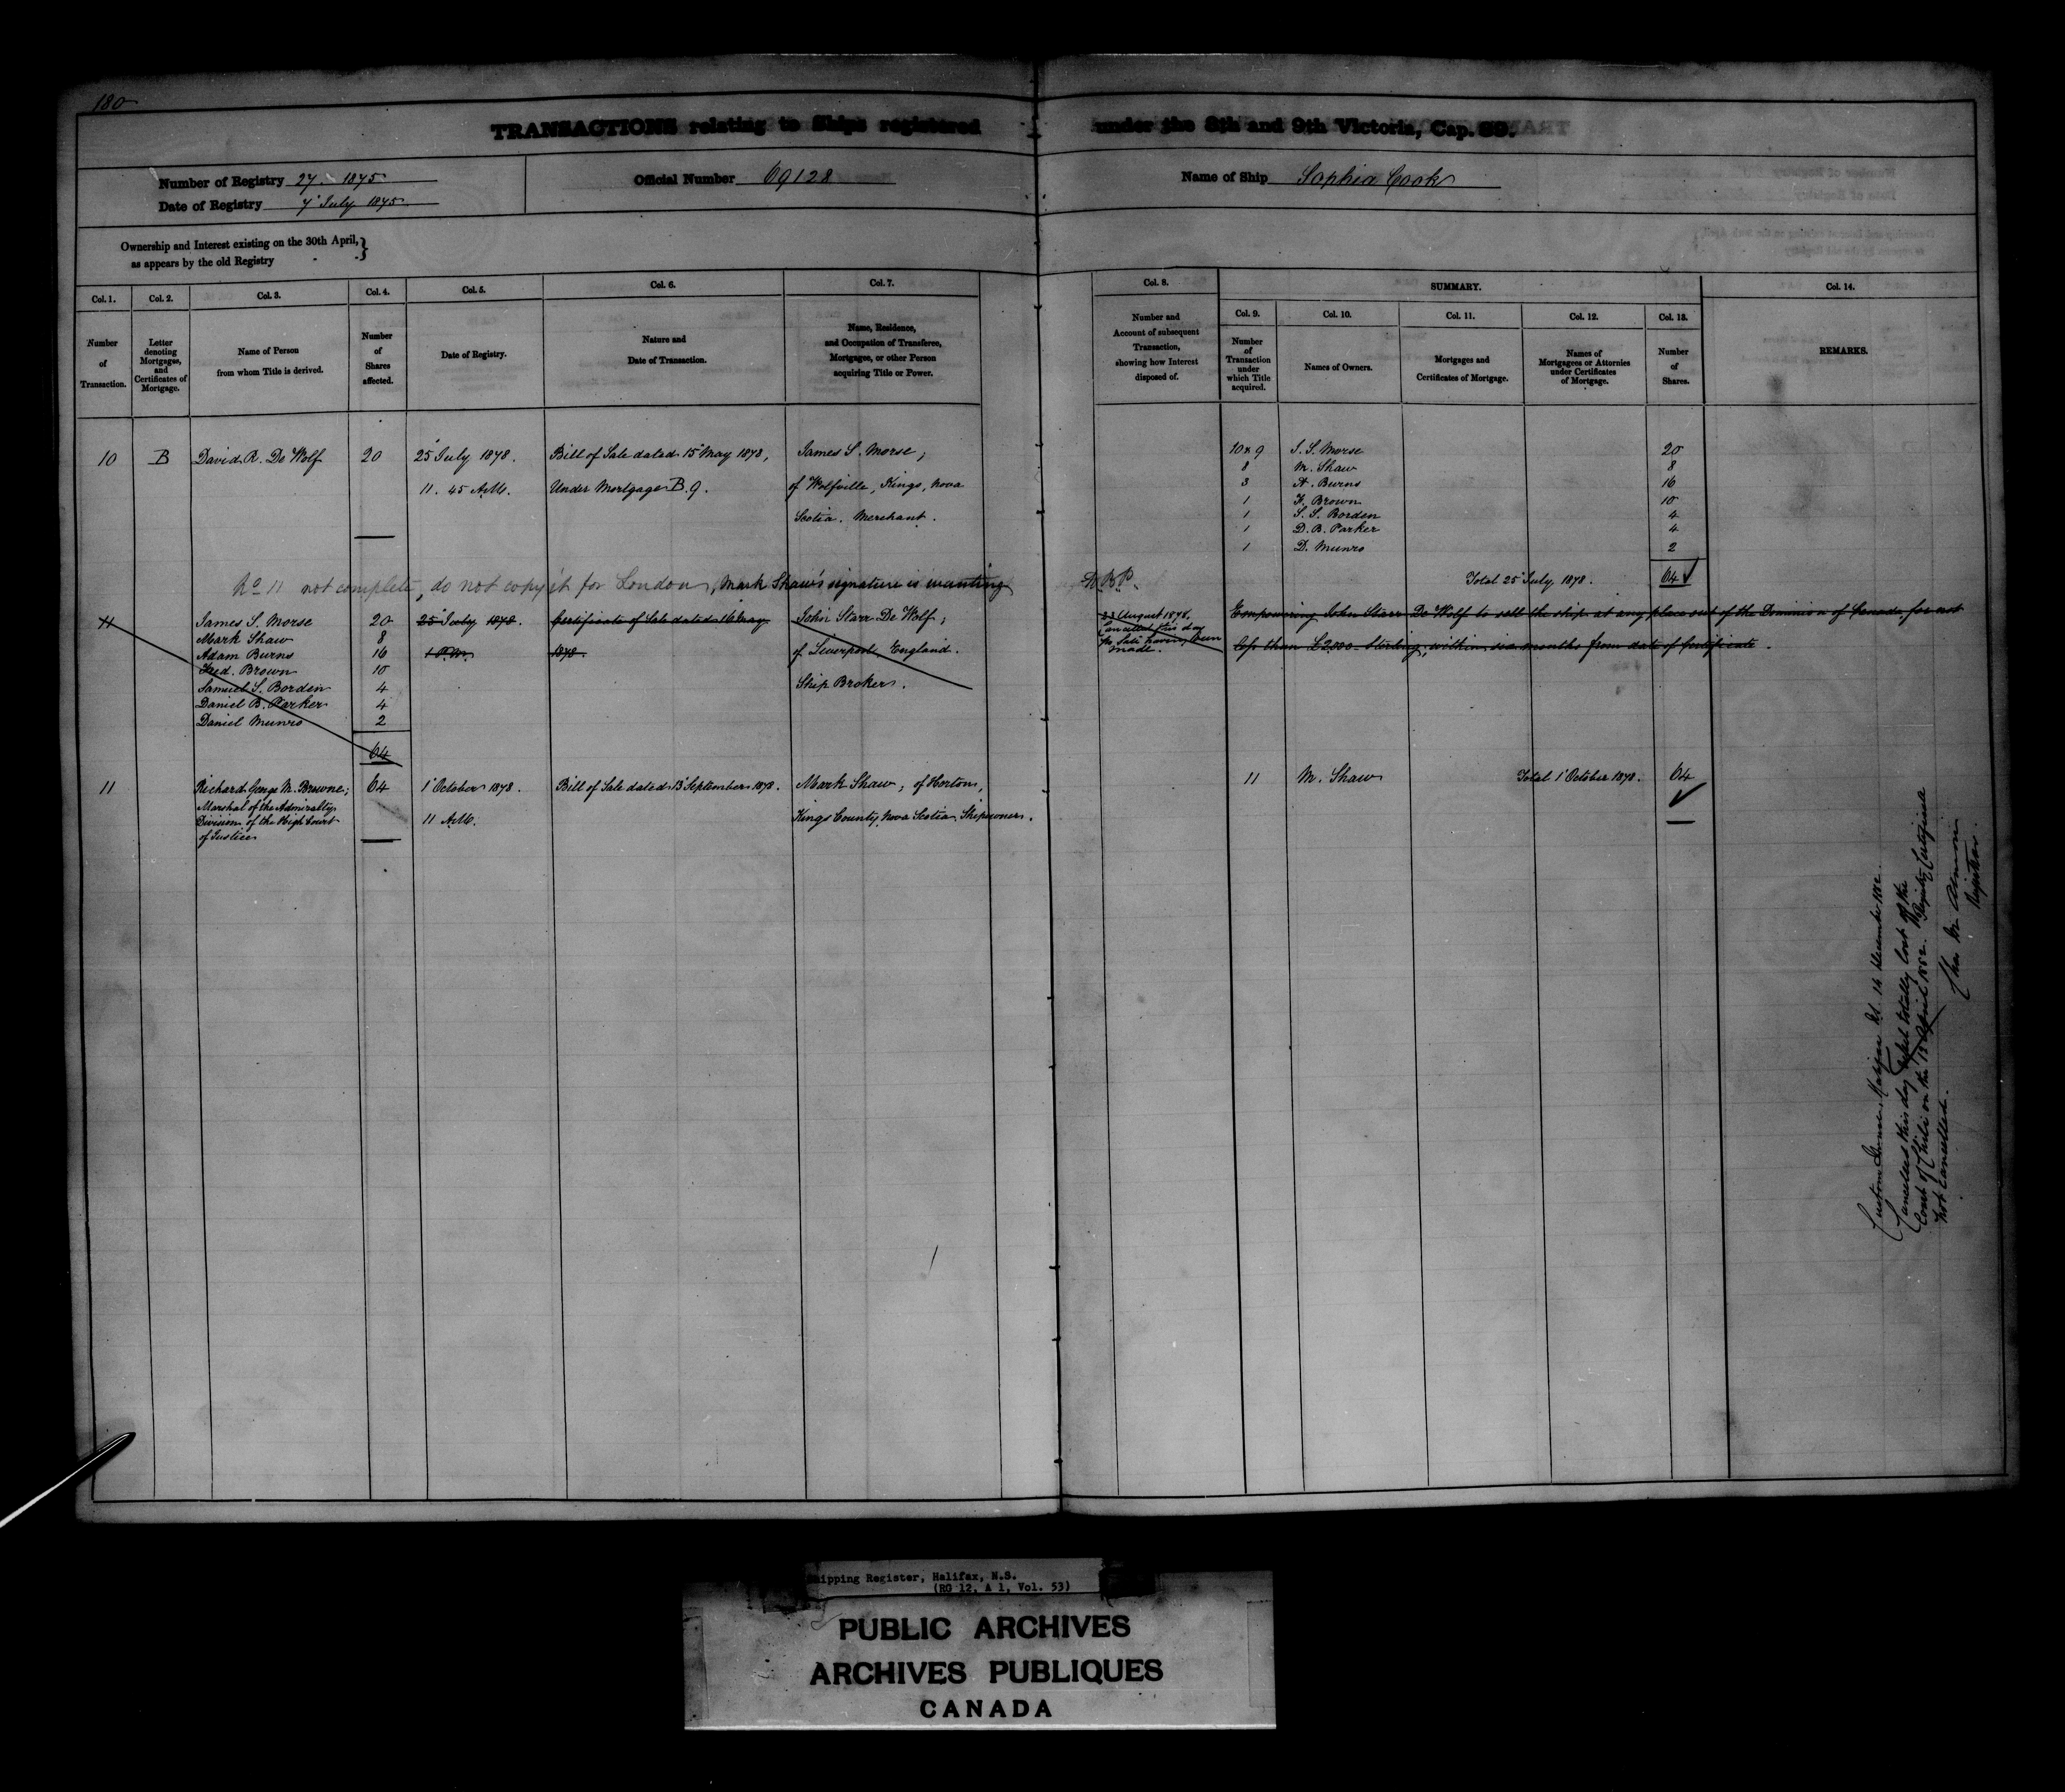 180
TRANSACTIONS relating to Ships registered under the 8th and 9th Victoria, Cap. 89.
Number of Registry 27. 1875
Date of Registry 7 July 1875
Official Number 69128
Name of Ship Sophia Cook
Ownership and Interest existing on the 30th April,
as appears by the old Registry
Col. 1. Col. 2. Col. 3. Col. 4. Col. 5. Col. 6. Col. 7.
Number of Transaction.
Letter denoting Mortgages, and Certificates of Mortgage.
Name of Person from whom Title is derived.
Number of Shares affected.
Date of Registry.
Nature and Date of Transaction.
Name, Residence, and Occupation of Transferee, Mortgagee, or other Person acquiring Title or Power.
Col. 8.
Number and Account of subsequent Transaction, showing how Interest disposed of.
SUMMARY.
Col. 9. Col. 10. Col. 11. Col. 12. Col. 13.
Number of Transaction under which Title acquired.
Names of Owners.
Mortgages and Certificates of Mortgage.
Names of Mortgagees or Attornies under Certificates of Mortgage.
Number of Shares.
Col. 14.
REMARKS.
10 B David R. De Wolf 20 25 July 1878. Bill of Sale dated 15 May 1878, James S. Morse,
11. 45 A.M. Under Mortgage B. 9. of Wolfville, Kings, Nova
Scotia. Merchant.
10 & 9 J. S. Morse 20
8 M. Shaw 8
3 A. Burns 16
1 F. Brown 10
1 S. S. Borden 4
1 D. B. Parker 4
1 D. Munro 2
Total 25 July 1878. 64
No 11 not complete, do not copy it for London, Mark Shaw's signature is wanting
11 James S. Morse 20 25 July 1878. Certificate of Sale dated 16 May John Starr De Wolf,
Mark Shaw 8
Adam Burns 16 1 P.M. 1878. of Liverpool, England.
Fred. Brown 10
Samuel S. Borden 4 Ship Broker.
Daniel B. Parker 4
Daniel Munro 2
64
August 1878.
Cancelled this day
no Sale having been
made.
Empowering John Starr De Wolf to sell the ship at any place out of the Dominion of Canada for not
less than £2,000 Sterling, within six months from date of Certificate.
11 Richard George M. Browne; 64 1 October 1878. Bill of Sale dated 13 September 1878. Mark Shaw, of Horton,
Marshal of the Admiralty
Division of the High Court 11 A.M. Kings County Nova Scotia Shipowner.
of Justice
11 M. Shaw Total 1 October 1878. 64
Custom House, Halifax NS. 14 December 1882.
Cancelled this day totally lost off the
Coast of Chili on the 13 April 1882. Registry Certificate
not cancelled.
Registrar
Shipping Register, Halifax, N.S.
(RG 12, A 1, Vol. 53)
PUBLIC ARCHIVES
ARCHIVES PUBLIQUES
CANADA